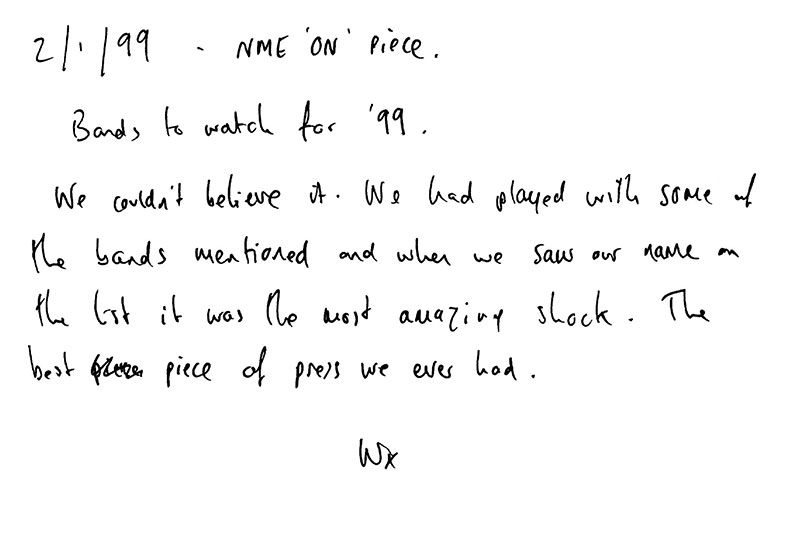 2/1/99 - NME 'ON' Piece.
Bands to watch for '99.
We couldn't believe it. We had played with some of
the bands mentioned and when we saw our name on
the list it was the most amazing shock. The
best piece of press we ever had.
Wx